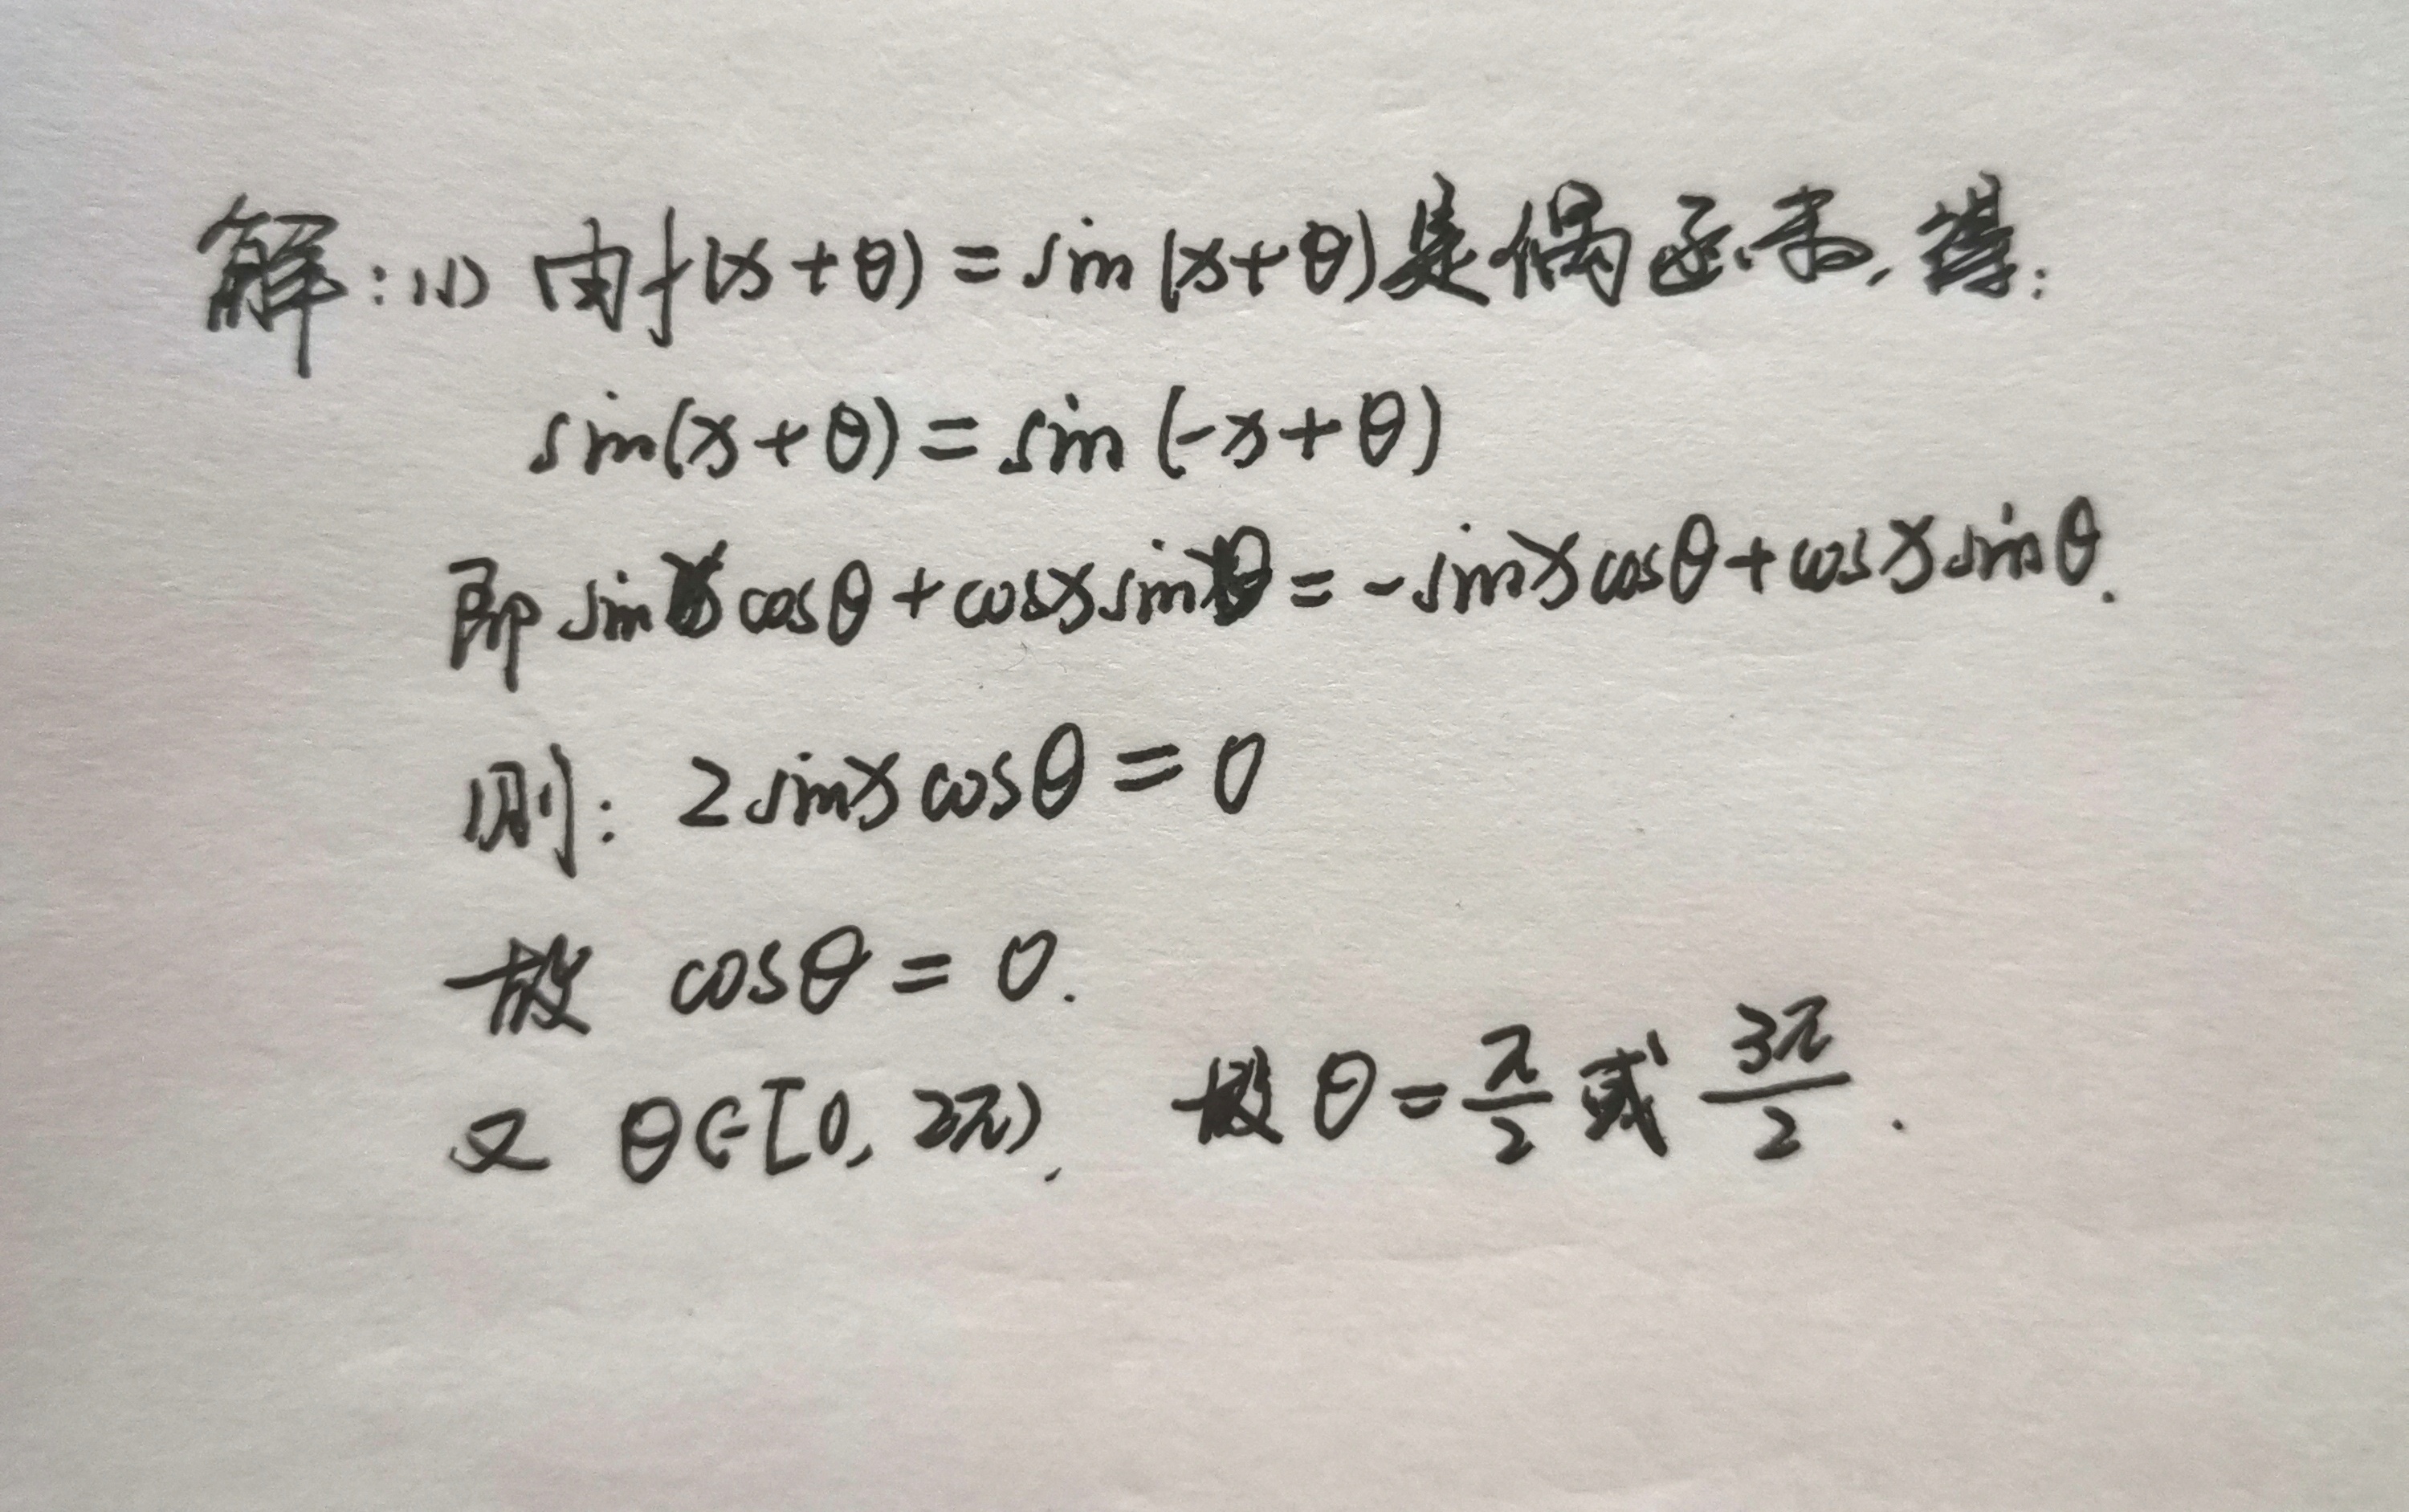 解:(1) 由f(x+θ)=sin(x+θ)是偶函数,得:
sin(x+θ)=sin(-x+θ)
即sinxcosθ+cosxsinθ=-sinxcosθ+cosxsinθ.
则: 2sinxcosθ=0
故 cosθ=0.
又 θ∈[0,2π), 故θ=π/2或3π/2.